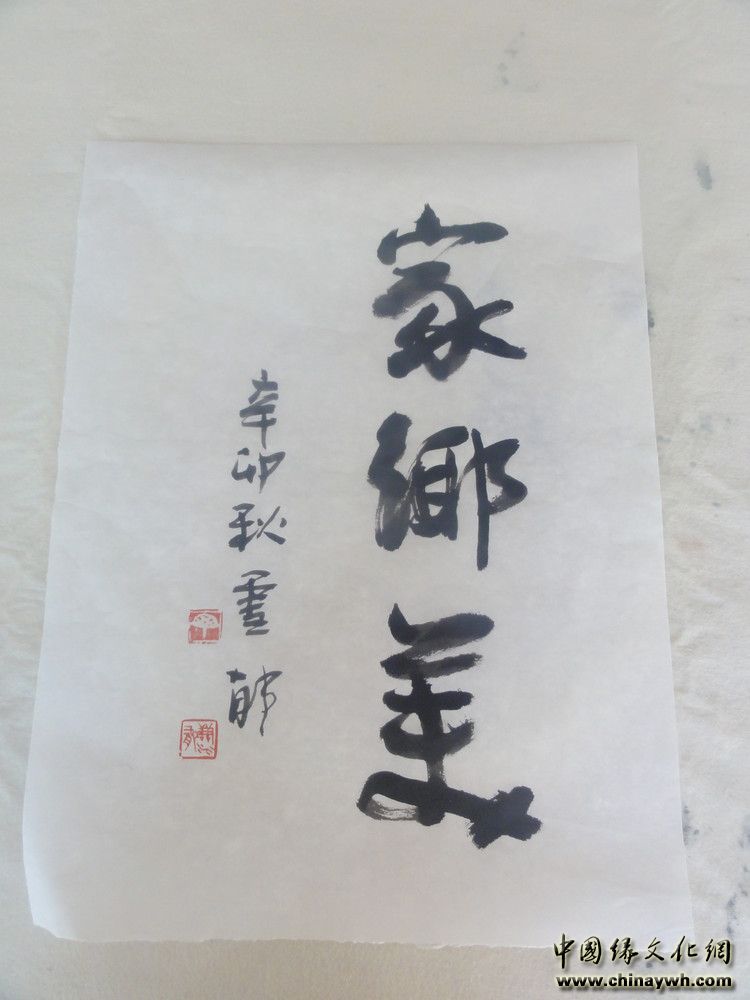 家鄉美
辛卯秋雲
中國緣文化網
www.chinaywh.com